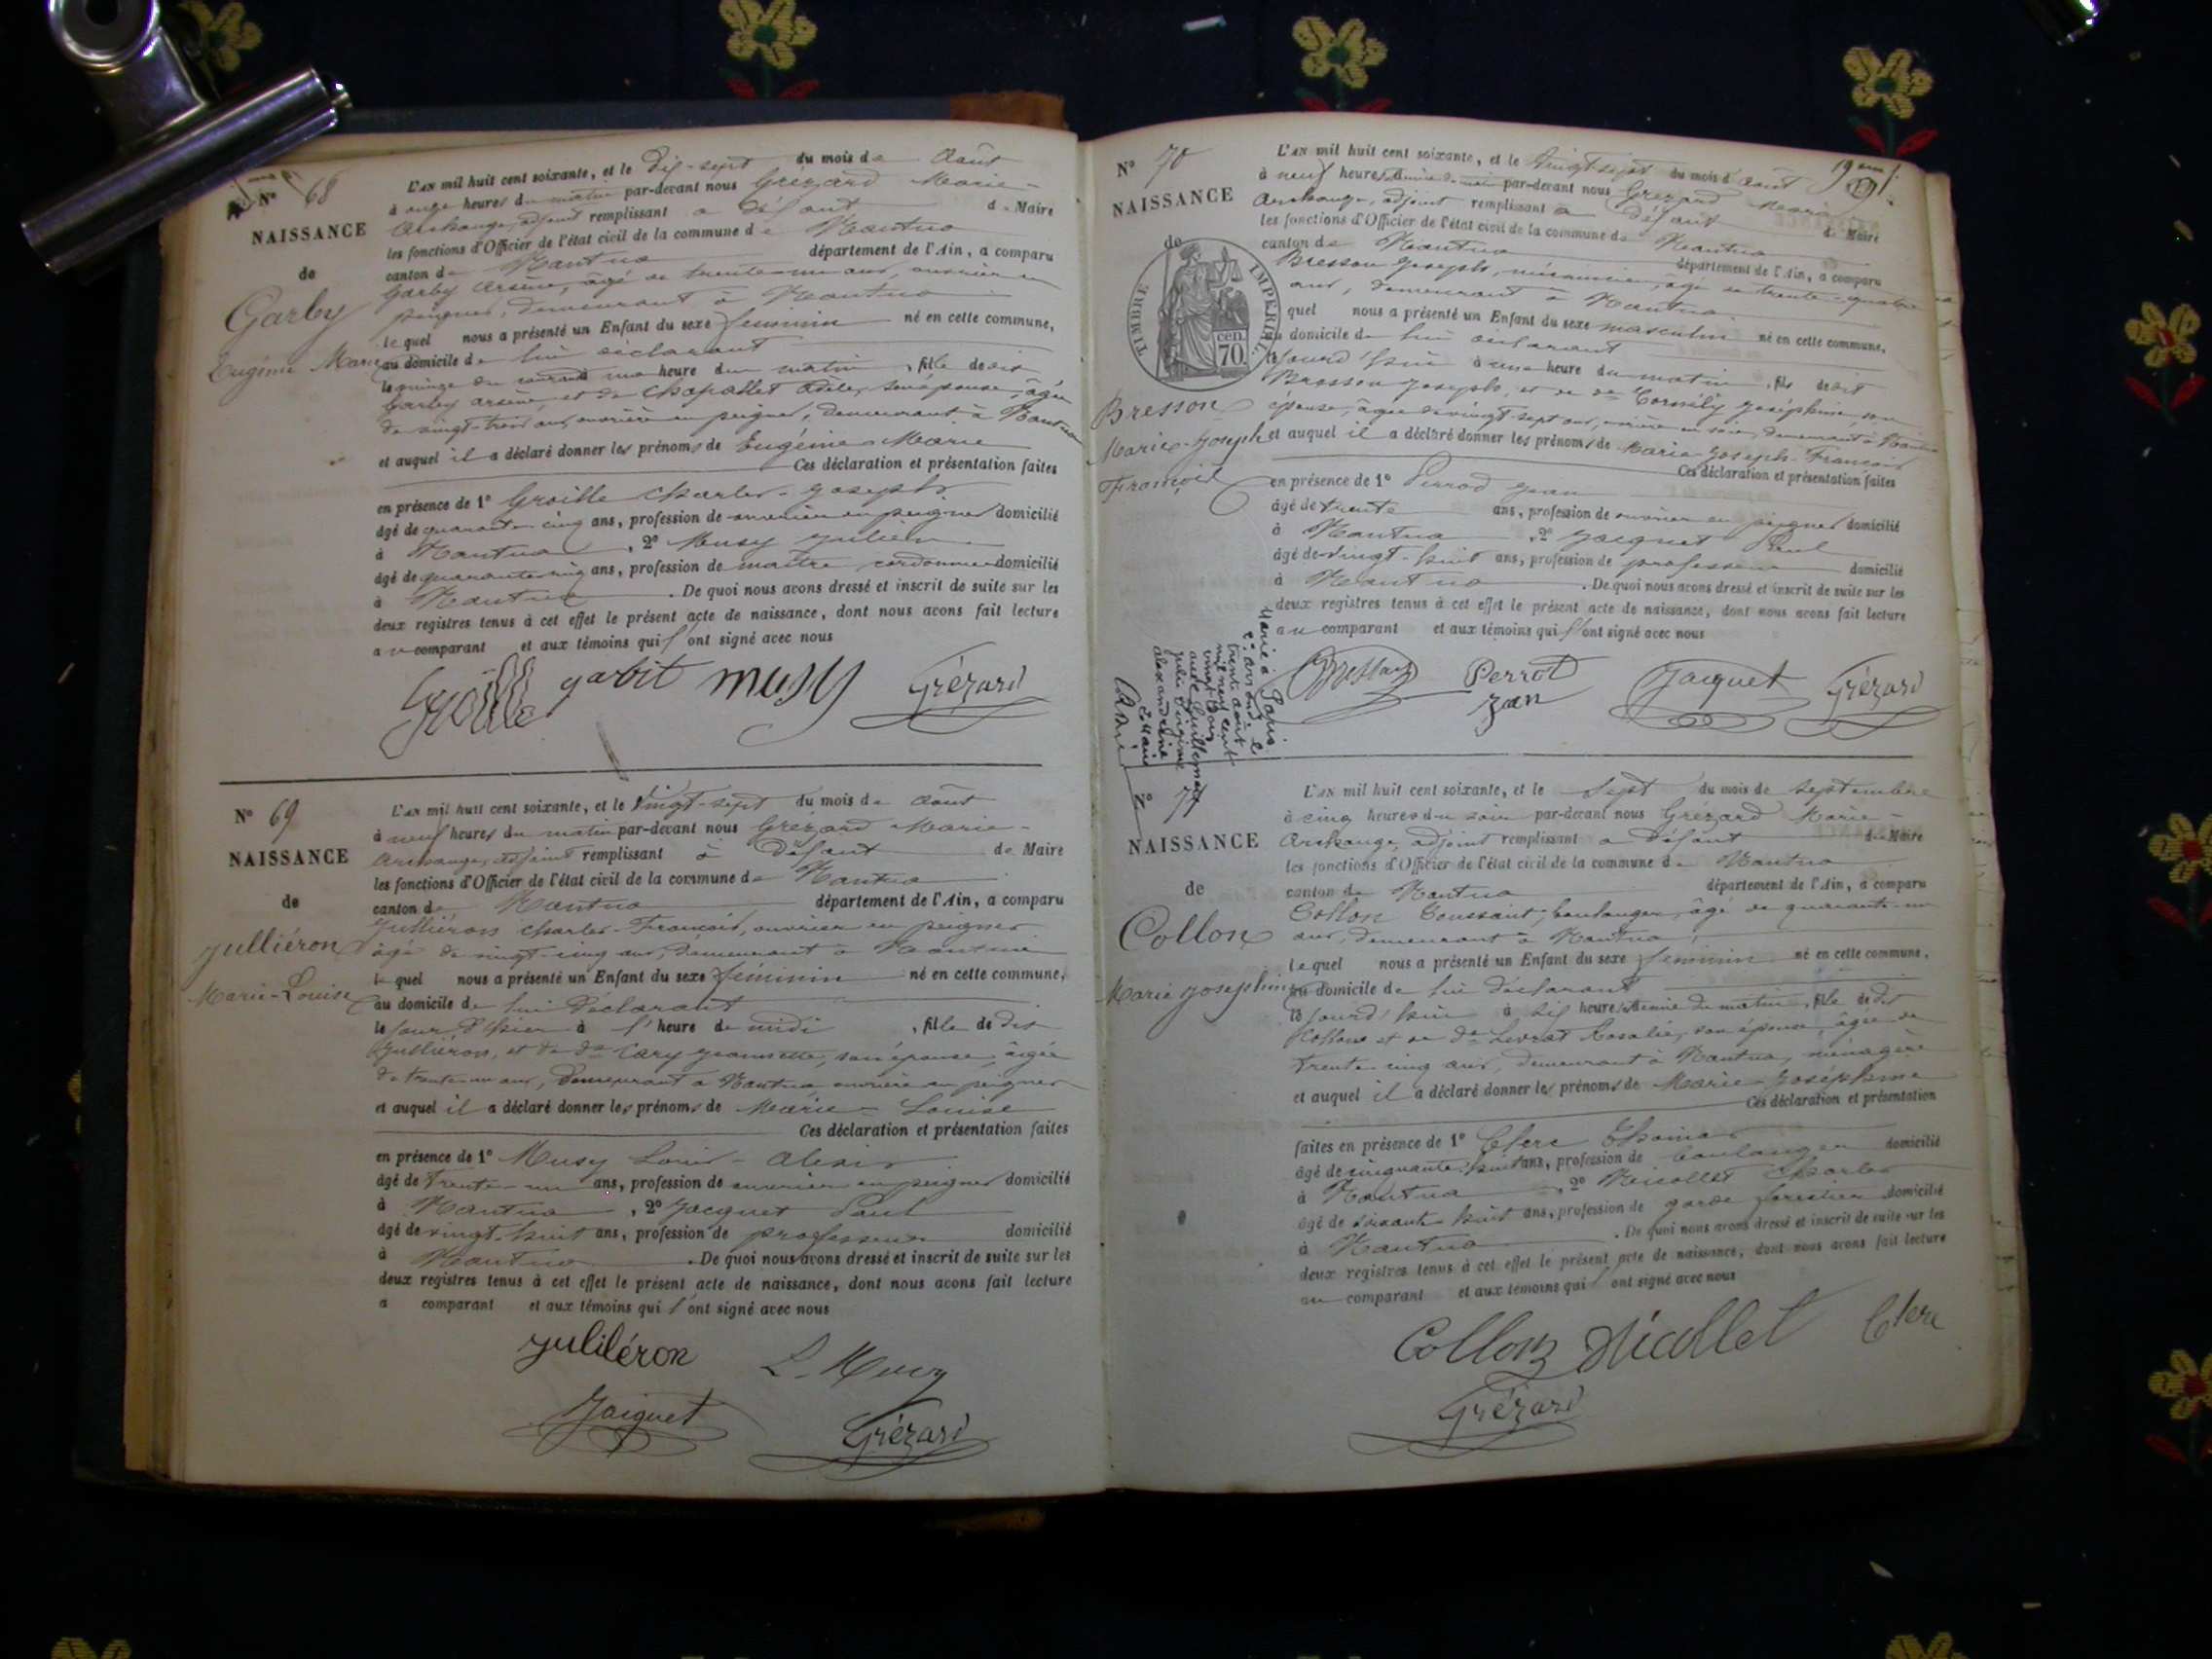 N° 68
NAISSANCE
de
Garby
Eugénie Marie
L'AN mil huit cent soixante, et le Dix-sept du mois de Août
à onze heures du matin par-devant nous Grézard Marie-
Archange, adjoint remplissant à défaut de Maire
les fonctions d'Officier de l'état civil de la commune de Nantua
canton de Nantua département de l'Ain, a comparu
Garby Arsène, âgé de trente-un ans, ouvrier en
peignes, demeurant à Nantua
lequel nous a présenté un Enfant du sexe féminin né en cette commune,
au domicile de lui déclarant
le quinze du courant une heure du matin, fille de dit
Garby Arsène, et de Chapallet Adèle, son épouse, âgée
de vingt-trois ans, ouvrière en peignes, demeurant à Nantua
et auquel il a déclaré donner les prénoms de Eugénie-Marie
Ces déclaration et présentation faites
en présence de 1° Groille Charles-Joseph
âgé de quarante-cinq ans, profession de ouvrier en peignes domicilié
à Nantua, 2° Musy Julien
âgé de quarante-cinq ans, profession de maître cordonnier domicilié
à Nantua. De quoi nous avons dressé et inscrit de suite sur les
deux registres tenus à cet effet le présent acte de naissance, dont nous avons fait lecture
au comparant et aux témoins qui ont signé avec nous
Groille garbit musy Grézard
N° 69
NAISSANCE
de
Julliéron
Marie-Louise
L'AN mil huit cent soixante, et le Vingt-sept du mois de Août
à neuf heures du matin par-devant nous Grézard Marie-
Archange, adjoint remplissant à défaut de Maire
les fonctions d'Officier de l'état civil de la commune de Nantua
canton de Nantua département de l'Ain, a comparu
Julliéron Charles-François, ouvrier en peignes
âgé de vingt-cinq ans, demeurant à Nantua
lequel nous a présenté un Enfant du sexe féminin né en cette commune,
au domicile de lui déclarant
le jour d'hier à l'heure de midi, fille de dit
Julliéron, et de de Cary Jeannette, son épouse, âgée
de trente-un ans, demeurant à Nantua, ouvrière en peignes
et auquel il a déclaré donner les prénoms de Marie-Louise
Ces déclaration et présentation faites
en présence de 1° Musy Louis-Alexis
âgé de trente-un ans, profession de ouvrier en peignes domicilié
à Nantua, 2° Jacquet Paul
âgé de vingt-huit ans, profession de professeur domicilié
à Nantua. De quoi nous avons dressé et inscrit de suite sur les
deux registres tenus à cet effet le présent acte de naissance, dont nous avons fait lecture
a comparant et aux témoins qui ont signé avec nous
Juliléron L. Musy
Jacquet Grézard
N° 70
NAISSANCE
de
TIMBRE IMPÉRIAL
70 cen.
Bresson
Marie-Joseph
François
L'AN mil huit cent soixante, et le Vingt-sept du mois d'Août
à neuf heures & demie du matin par-devant nous Grézard Marie
Archange, adjoint remplissant à défaut de Maire
les fonctions d'Officier de l'état civil de la commune de Nantua
canton de Nantua département de l'Ain, a comparu
Bresson Joseph, mécanicien, âgé de trente-quatre
ans, demeurant à Nantua
quel nous a présenté un Enfant du sexe masculin né en cette commune,
au domicile de lui déclarant
jourd'hui à une heure du matin, fils de dit
Bresson Joseph, et de de Cornély Joséphine, son
épouse, âgée de vingt-sept ans, ouvrière en soie, demeurant à Nantua
et auquel il a déclaré donner les prénoms de Marie-Joseph-François
Ces déclaration et présentation faites
en présence de 1° Perrod Jean
âgé de trente ans, profession de ouvrier en peignes domicilié
à Nantua, 2° Jacquet Paul
âgé de vingt-huit ans, profession de professeur domicilié
à Nantua. De quoi nous avons dressé et inscrit de suite sur les
deux registres tenus à cet effet le présent acte de naissance, dont nous avons fait lecture
au comparant et aux témoins qui ont signé avec nous
Bresson Perrot Jacquet Grézard
Jean
Marié à Paris
trente août
mil neuf cent
N° 71
NAISSANCE
de
Collon
Marie Joséphine
L'AN mil huit cent soixante, et le Sept du mois de Septembre
à cinq heures du soir par-devant nous Grézard Marie-
Archange, adjoint remplissant à défaut de Maire
les fonctions d'Officier de l'état civil de la commune de Nantua
canton de Nantua département de l'Ain, a comparu
Collon Toussaint, boulanger, âgé de quarante-un
ans, demeurant à Nantua,
lequel nous a présenté un Enfant du sexe féminin né en cette commune,
au domicile de lui déclarant
jourd'hui à six heures & demie du matin, fille de dit
Collon et de de Levrat Rosalie, son épouse, âgée de
trente-cinq ans, demeurant à Nantua, ménagère
et auquel il a déclaré donner les prénoms de Marie-Joséphine
Ces déclaration et présentation
faites en présence de 1° Clerc Thomas
âgé de cinquante-huit ans, profession de boulanger domicilié
à Nantua, 2° Nicollet Charles
âgé de soixante-huit ans, profession de garde forestier domicilié
à Nantua. De quoi nous avons dressé et inscrit de suite sur les
deux registres tenus à cet effet le présent acte de naissance, dont nous avons fait lecture
au comparant et aux témoins qui ont signé avec nous
Collon Nicollet Clerc
Grézard